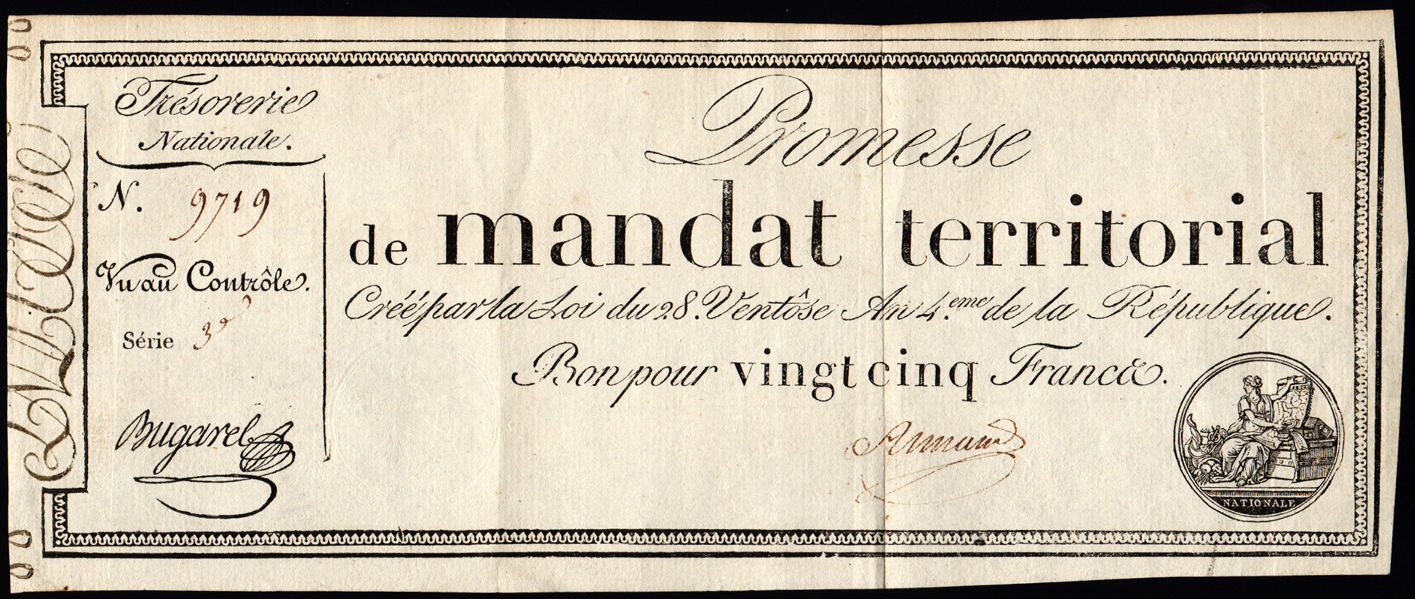 Trésorerie
Nationale.
N. 9719
Vu au Contrôle.
Série 3e
Bugarel
Promesse
de mandat territorial
Créé par la Loi du 28. Ventôse An 4.eme de la République.
Bon pour vingt cinq Francs.
Armand
NATIONALE